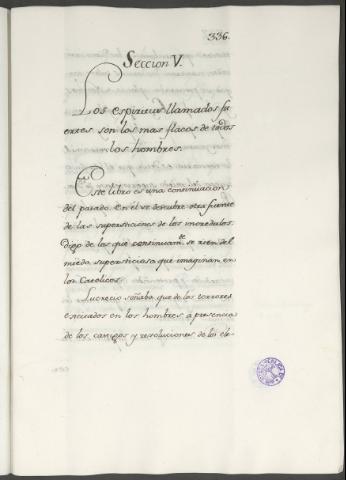 336.
Seccion V.
Los espiritus llamados fu
ertes son los mas flacos de todos
los hombres.
Este libro es una continuacion
del pasado. En el se descubre otra fuente
de las supersticiones de los incredulos.
Digo de los que continuam.te se rien del
miedo supersticioso que imaginan en
los Catolicos.
Lucrecio soñaba que de los terrores
excitados en los hombres à presencia
de los, y revoluciones de los ele-